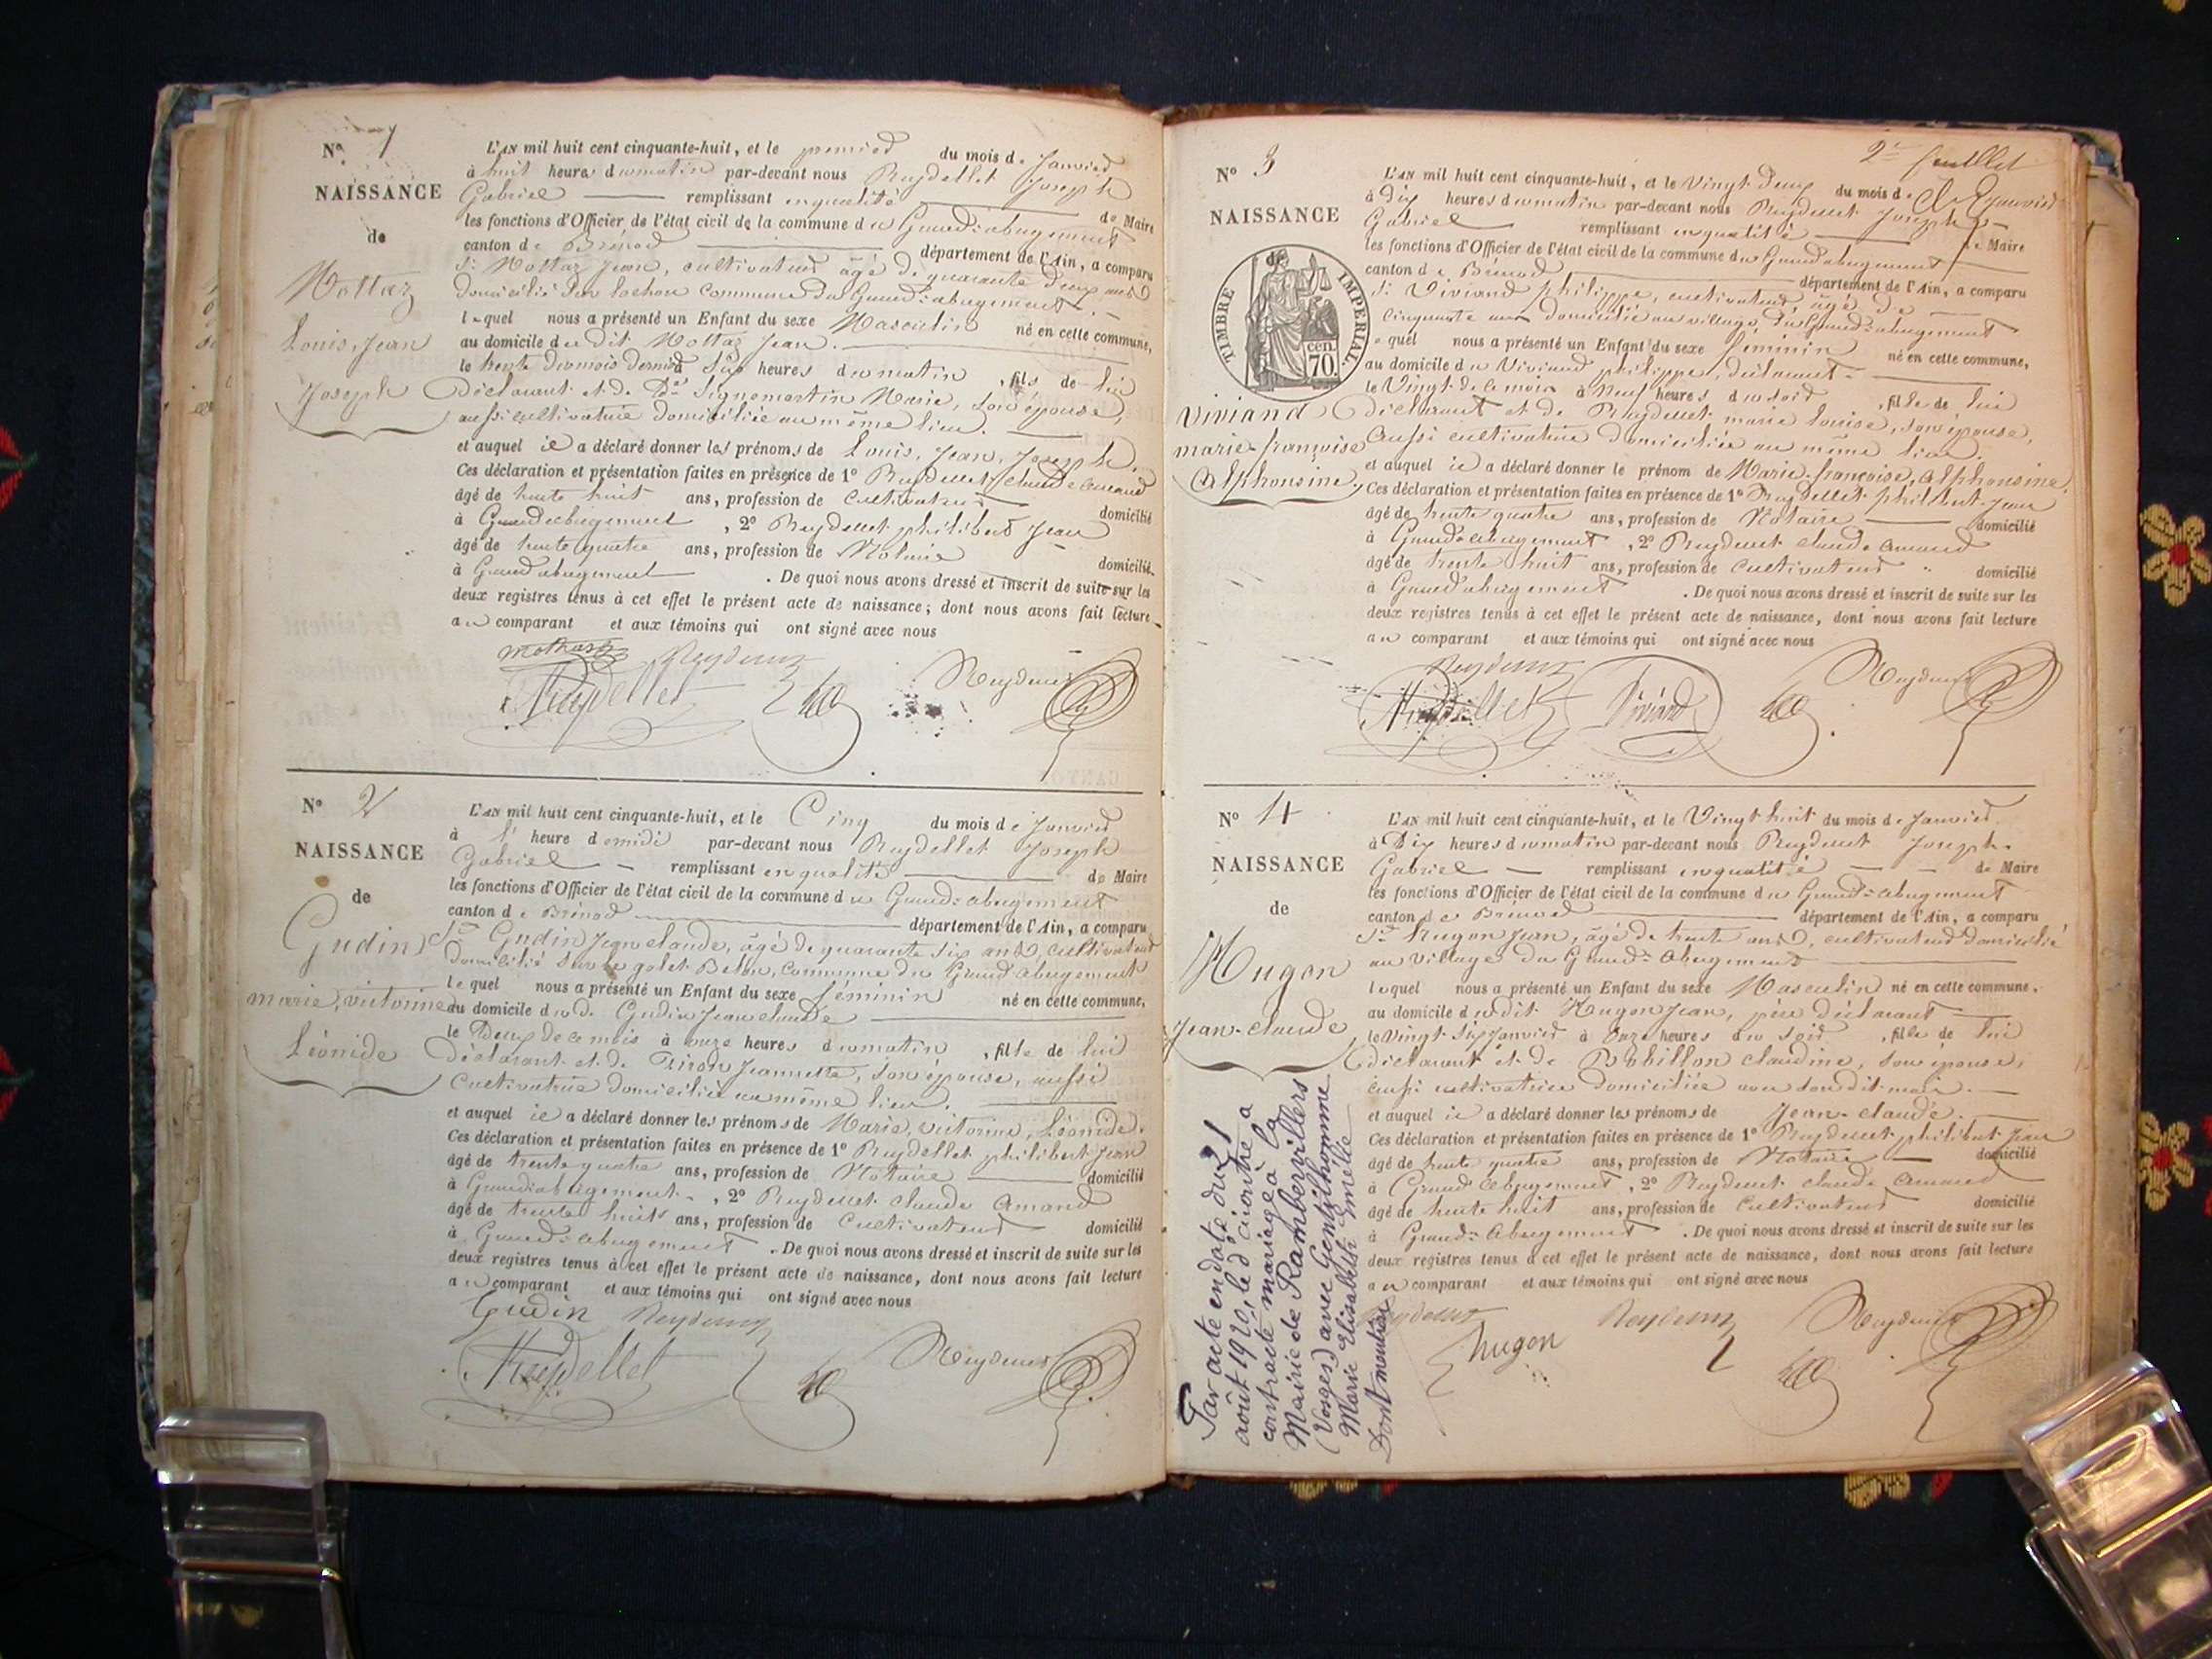 N° 1
NAISSANCE
de
Mottaz
Louis, Jean
Joseph
L'AN mil huit cent cinquante-huit, et le premier du mois de Janvier
à huit heures du matin par-devant nous Reydellet Joseph
Gabriel remplissant en qualité de Maire
les fonctions d'Officier de l'état civil de la commune du Grand-abergement
canton de Brénod département de l'Ain, a comparu
Sr Mottaz Jean, cultivateur âgé de quarante deux ans
domicilié sur commune du Grand-abergement
lequel nous a présenté un Enfant du sexe Masculin né en cette commune,
au domicile du dit Mottaz Jean.
le trente du mois dernier à six heures du matin, fils de lui
déclarant et de De Signemartin Marie, son épouse,
aussi cultivatrice domiciliée au même lieu.
et auquel il a déclaré donner les prénoms de Louis, Jean, Joseph.
Ces déclaration et présentation faites en présence de 1° Reydellet Claude Amand
âgé de trente huit ans, profession de Cultivateur domicilié
à Grand abergement, 2° Reydellet philibert Jean
âgé de trente quatre ans, profession de Notaire domicilié
à Grand abergement. De quoi nous avons dressé et inscrit de suite sur les
deux registres tenus à cet effet le présent acte de naissance; dont nous avons fait lecture
au comparant et aux témoins qui ont signé avec nous
Reydellet
Reydellet Reydellet
N° 2
NAISSANCE
de
Gudin
marie, victorine
Léonide
L'AN mil huit cent cinquante-huit, et le Cinq du mois de Janvier
à l' heure de midi par-devant nous Reydellet Joseph
Gabriel remplissant en qualité de Maire
les fonctions d'Officier de l'état civil de la commune du Grand-abergement
canton de Brénod département de l'Ain, a comparu
Sr Gudin Jean claude, âgé de quarante six ans, cultivateur
domicilié sur le golet Belon, commune du Grand abergement
lequel nous a présenté un Enfant du sexe féminin né en cette commune,
au domicile du d. Gudin Jean claude
le Deux de ce mois à onze heures du matin, fille de lui
déclarant et de Jeannette, son épouse, aussi
cultivatrice domiciliée au même lieu.
et auquel il a déclaré donner les prénoms de Marie, victorine, Léonide.
Ces déclaration et présentation faites en présence de 1° Reydellet philibert Jean
âgé de trente quatre ans, profession de Notaire domicilié
à Grand abergement, 2° Reydellet claude Amand
âgé de trente huit ans, profession de Cultivateur domicilié
à Grand-abergement. De quoi nous avons dressé et inscrit de suite sur les
deux registres tenus à cet effet le présent acte de naissance, dont nous avons fait lecture
au comparant et aux témoins qui ont signé avec nous
Gudin Reydellet
Reydellet Reydellet
2e feuillet
N° 3
NAISSANCE
de
TIMBRE IMPERIAL
cen. 70.
Viviand
marie-françoise
Alphonsine,
L'AN mil huit cent cinquante-huit, et le Vingt deux du mois de Janvier
à dix heures du matin par-devant nous Reydellet Joseph
Gabriel remplissant en qualité de Maire
les fonctions d'Officier de l'état civil de la commune du Grand abergement
canton de Brénod département de l'Ain, a comparu
Sr Viviand philippe, cultivateur âgé de
cinquante ans domicilié au village du Grand-abergement
lequel nous a présenté un Enfant du sexe féminin né en cette commune,
au domicile du Viviand philippe, déclarant
le Vingt de ce mois à Neuf heures du soir, fille de lui
déclarant et de Reydellet marie louise, son épouse,
aussi cultivatrice domiciliée au même lieu.
et auquel il a déclaré donner le prénom de Marie-françoise, Alphonsine.
Ces déclaration et présentation faites en présence de 1° Reydellet philibert Jean
âgé de trente quatre ans, profession de Notaire domicilié
à Grand-abergement, 2° Reydellet claude Amand
âgé de trente huit ans, profession de Cultivateur domicilié
à Grand abergement. De quoi nous avons dressé et inscrit de suite sur les
deux registres tenus à cet effet le présent acte de naissance, dont nous avons fait lecture
au comparant et aux témoins qui ont signé avec nous
Reydellet
Reydellet Viviand Reydellet
N° 4
NAISSANCE
de
Hugon
Jean-claude
L'AN mil huit cent cinquante-huit, et le Vingt huit du mois de Janvier
à Dix heures du matin par-devant nous Reydellet Joseph
Gabriel remplissant en qualité de Maire
les fonctions d'Officier de l'état civil de la commune du Grand-abergement
canton de Brénod département de l'Ain, a comparu
Sr Hugon Jean, âgé de trente ans, cultivateur domicilié
au village du Grand-abergement
lequel nous a présenté un Enfant du sexe Masculin né en cette commune,
au domicile du dit Hugon Jean, père déclarant
le Vingt six Janvier à Onze heures du soir, fils de lui
déclarant et de Bobillon claudine, son épouse,
aussi cultivatrice domiciliée avec son dit mari.
et auquel il a déclaré donner les prénoms de Jean-claude.
Ces déclaration et présentation faites en présence de 1° Reydellet philibert Jean
âgé de trente quatre ans, profession de Notaire domicilié
à Grand abergement, 2° Reydellet claude Amand
âgé de trente huit ans, profession de Cultivateur domicilié
à Grand-abergement. De quoi nous avons dressé et inscrit de suite sur les
deux registres tenus à cet effet le présent acte de naissance, dont nous avons fait lecture
au comparant et aux témoins qui ont signé avec nous
Reydellet Reydellet Reydellet
hugon
Par acte en date du 21
août 1920, le d. ci contre a
contracté mariage à la
Mairie de Rambervillers
(Vosges) avec Gentilhomme
Marie Elisabeth Emélie
Dont mention